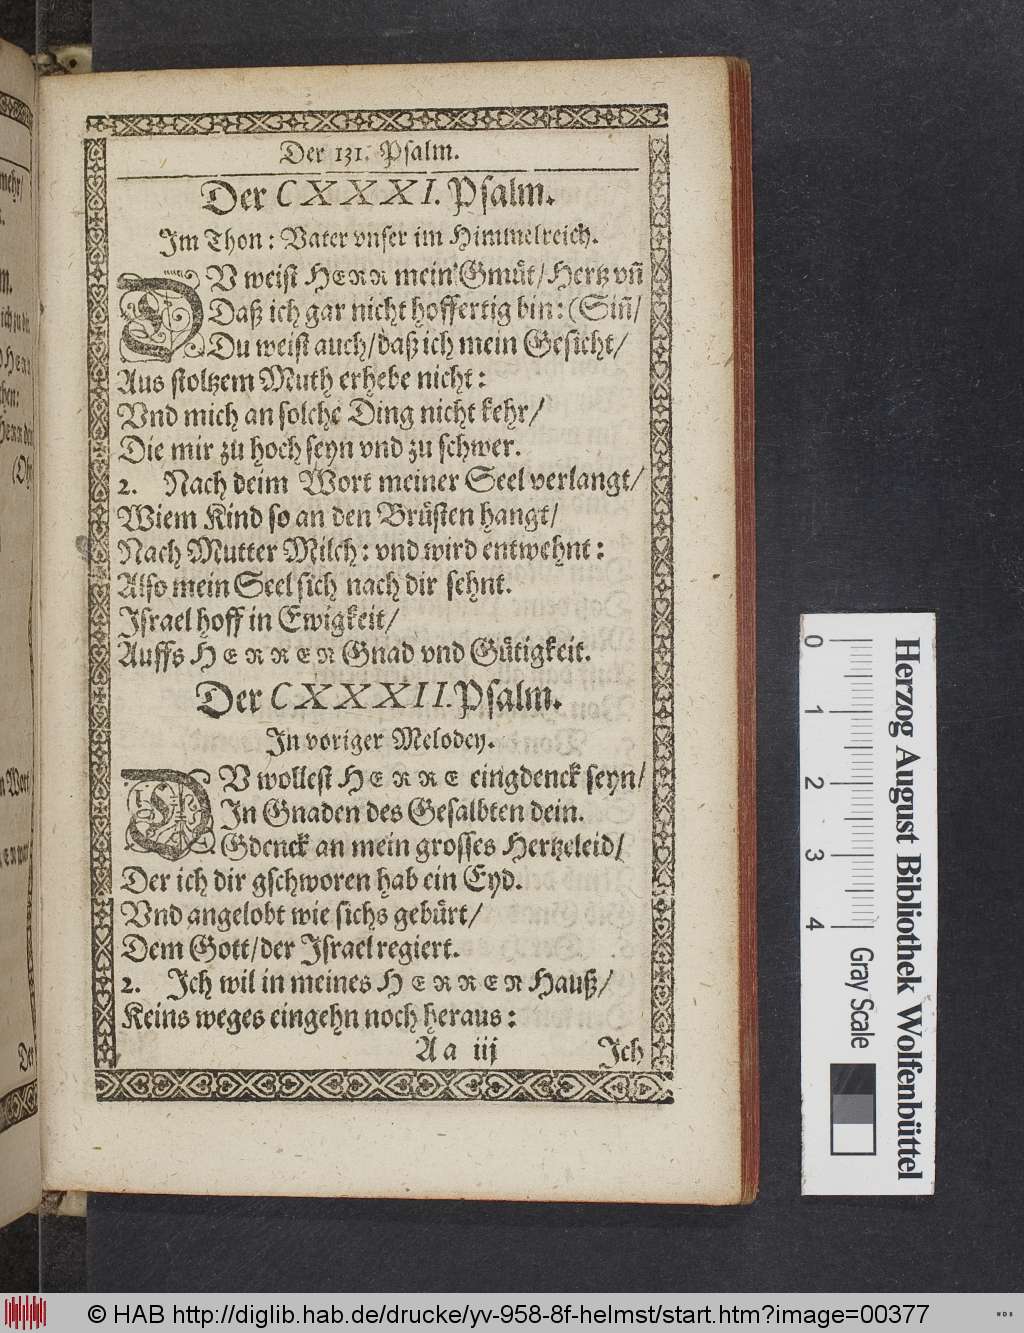 Der 131. Psalm.
Der CXXXI. Psalm.
Im Thon: Vater vnser im Himmelreich.
DV weist HERR mein Gmüt/ Hertz vñ
Daß ich gar nicht hoffertig bin: (Siñ/
Du weist auch/ daß ich mein Gesicht/
Aus stoltzem Muth erhebe nicht:
Vnd mich an solche Ding nicht kehr/
Die mir zu hoch seyn vnd zu schwer.
2. Nach deim Wort meiner Seel verlangt/
Wiem Kind so an den Brüsten hangt/
Nach Mutter Milch: vnd wird entwehnt:
Also mein Seel sich nach dir sehnt.
Israel hoff in Ewigkeit/
Auffs HERREN Gnad vnd Gütigkeit.
Der CXXXII. Psalm.
In voriger Melodey.
DV wollest HERRE eingdenck seyn/
In Gnaden des Gesalbten dein.
Gdenck an mein grosses Hertzeleid/
Der ich dir gschworen hab ein Eyd.
Vnd angelobt wie sichs gebürt/
Dem Gott/ der Israel regiert.
2. Ich wil in meines HERREN Hauß/
Keins weges eingehn noch heraus:
Aa iij Ich
mehr/
m.
(Oh
n Wort
Der
0 1 2 3 4
Herzog August Bibliothek Wolfenbüttel
Gray Scale
© HAB http://diglib.hab.de/drucke/yv-958-8f-helmst/start.htm?image=00377